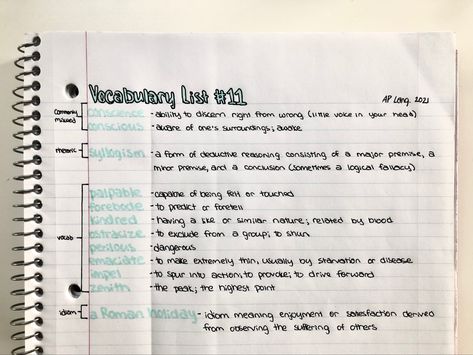 Vocabulary List #11
AP Lang. 2021
commonly misused
conscience - ability to discern right from wrong (little voice in your head)
conscious - aware of one's surroundings; awake
rhetoric
syllogism - a form of deductive reasoning consisting of a major premise, a
minor premise, and a conclusion (sometimes a logical fallacy)
vocab
palpable - capable of being felt or touched
forebode - to predict or foretell
kindred - having a like or similar nature; related by blood
ostracize - to exclude from a group; to shun
perilous - dangerous
emaciate - to make extremely thin, usually by starvation or disease
impel - to spur into action; to provoke; to drive forward
zenith - the peak; the highest point
idiom
a Roman holiday - idiom meaning enjoyment or satisfaction derived
from observing the suffering of others